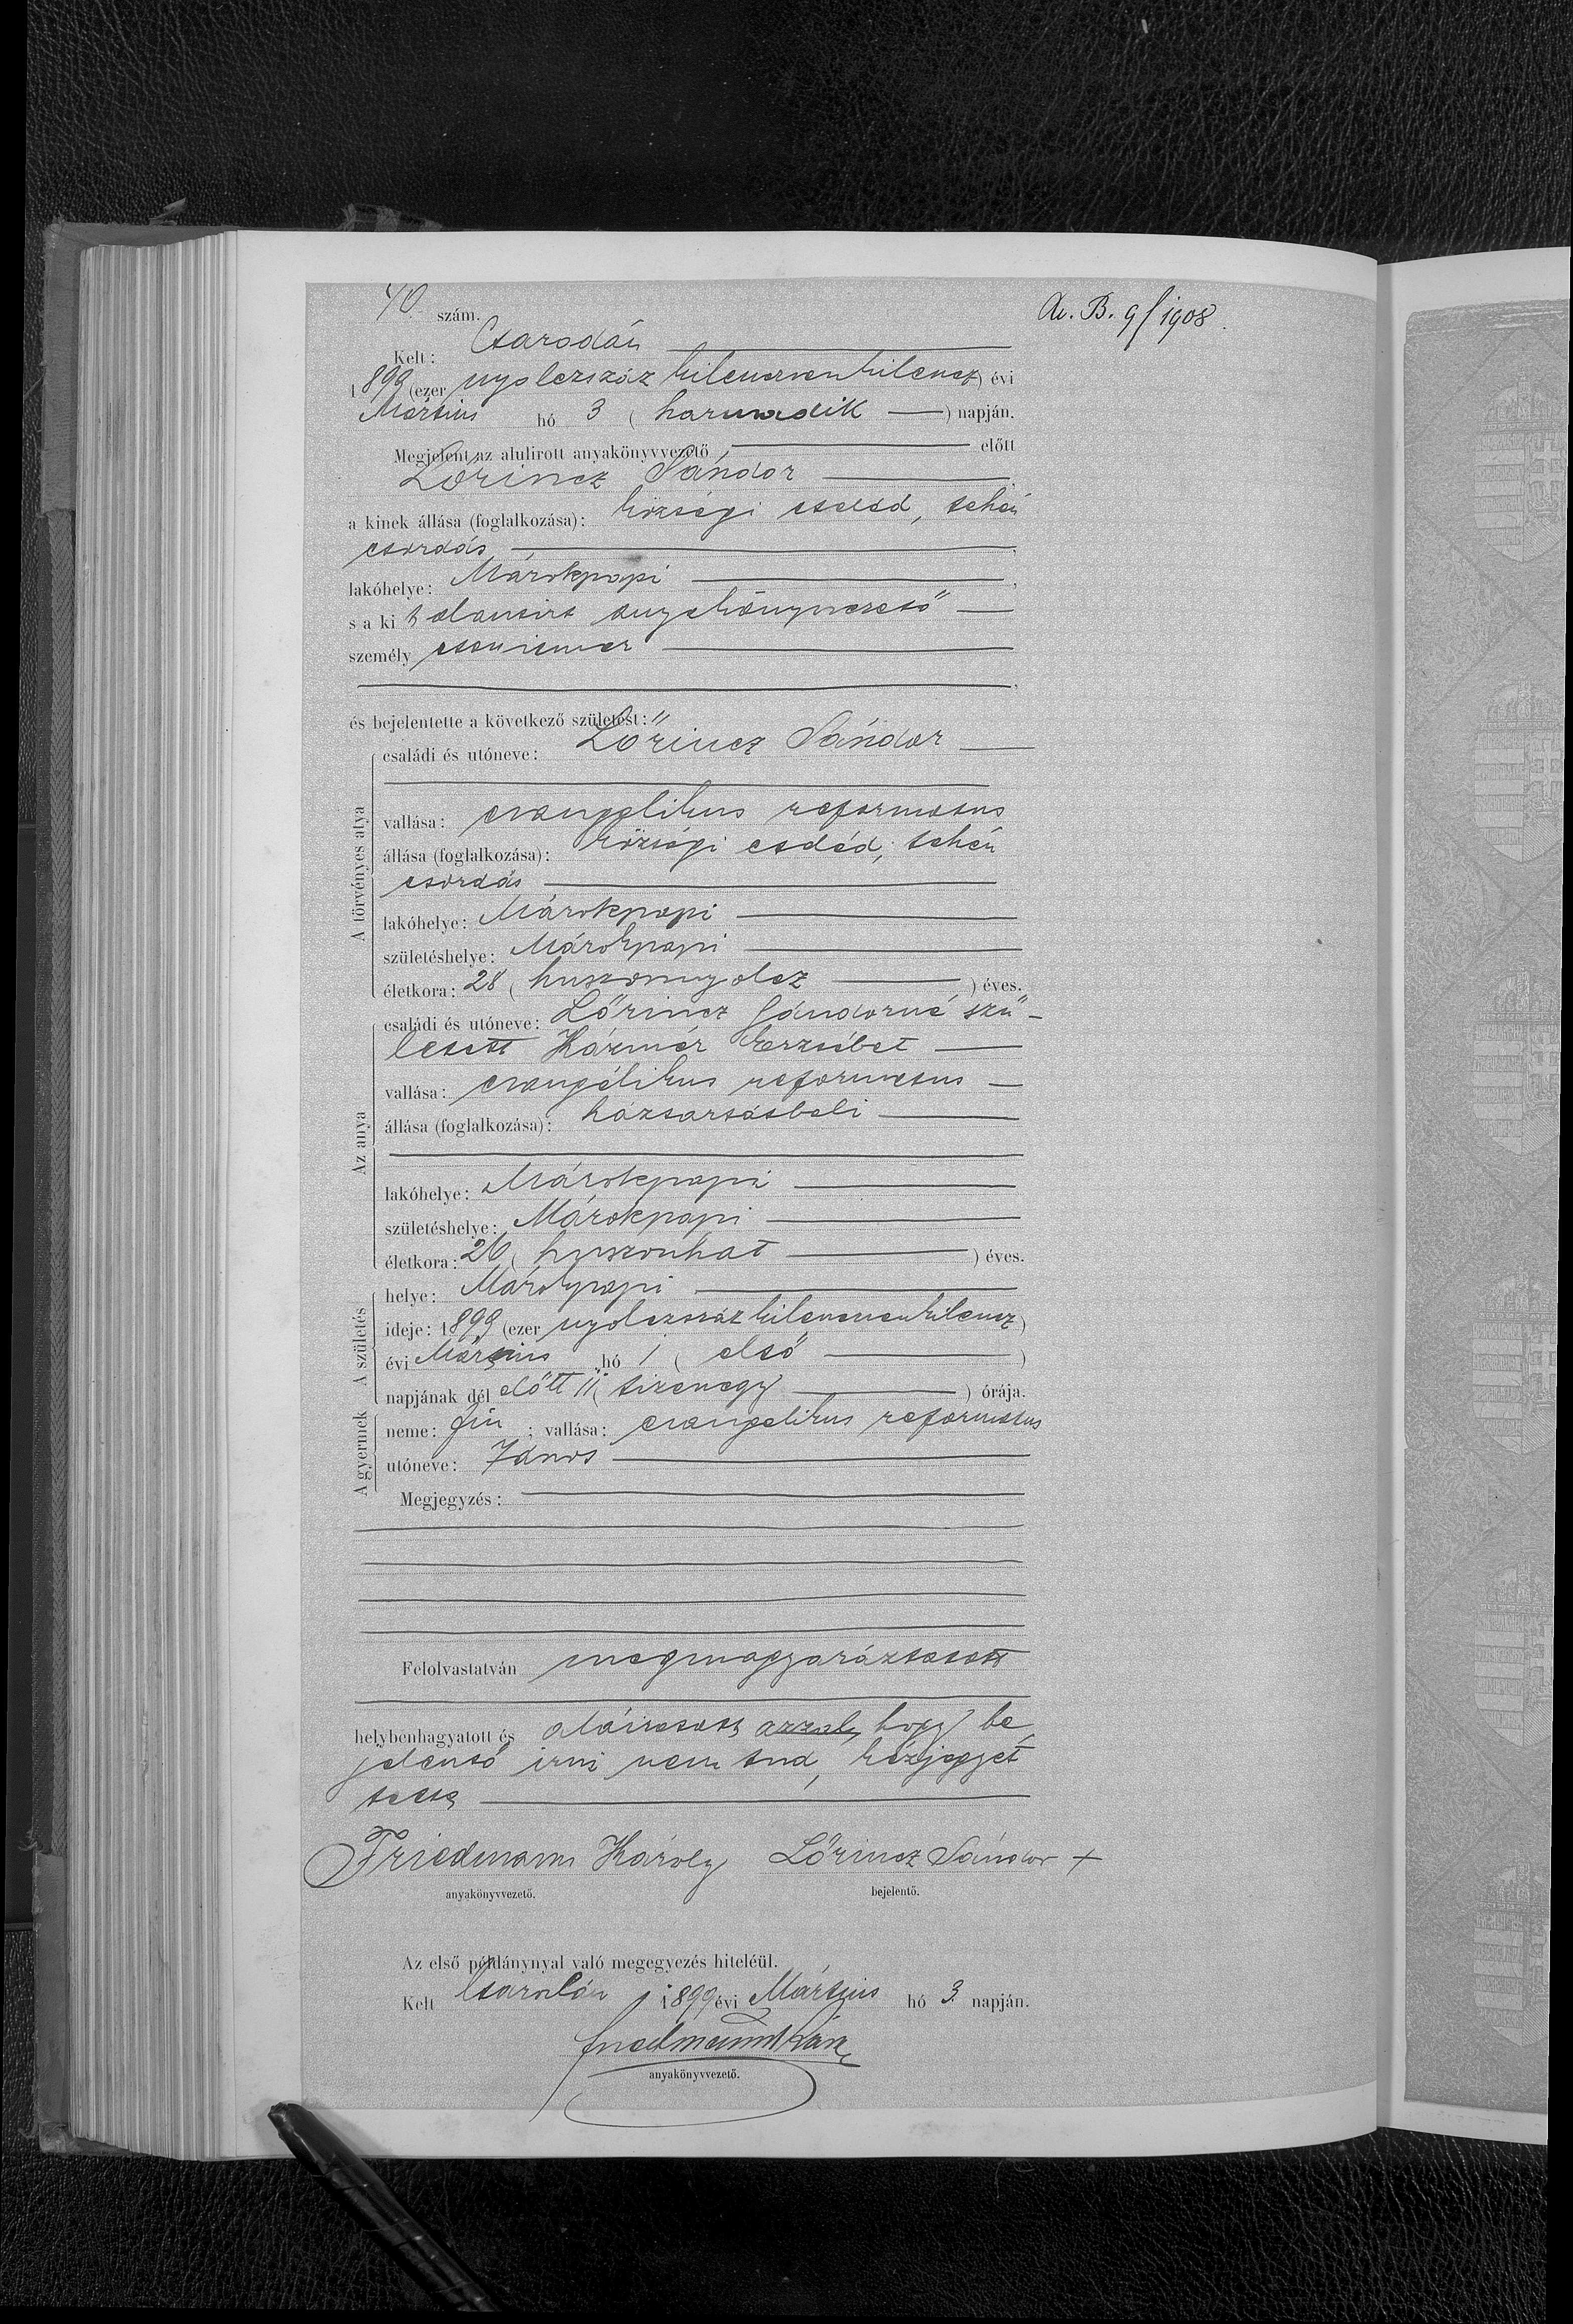 40. szám.
Av. B. 9/1908.
Kelt: Csarodán
1899 (ezer nyolczszáz kilenczvenkilencz) évi
Mártius hó 3 (harmadik) napján.
Megjelent az alulirott anyakönyvvezető előtt
Lőrincz Sándor
a kinek állása (foglalkozása): községi cseléd, tehén
csordás,
lakóhelye: Márokpapi,
s a ki alantirt anyakönyvvezető
személy
és bejelentette a következő születést:
A törvényes atya
családi és utóneve: Lőrincz Sándor
vallása: evangelikus reformatus
állása (foglalkozása): községi cseléd, tehén
csordás
lakóhelye: Márokpapi
születéshelye: Márokpapi
életkora: 28 (huszonnyolcz) éves.
Az anya
családi és utóneve: Lőrincz Sándorné szü-
letett Kázmér Erzsébet
vallása: evangélikus reformatus
állása (foglalkozása): háztartásbeli
lakóhelye: Márokpapi
születéshelye: Márokpapi
életkora: 26 (huszonhat) éves.
A születés
helye: Márokpapi
ideje: 1899 (ezer nyolczszáz kilenczvenkilencz)
évi Mártius hó 1 (első)
napjának dél előtt 11 (tizenegy) órája.
A gyermek
neme: fiu; vallása: evangelikus reformatus
utóneve: János
Megjegyzés:
Felolvastatván megmagyaráztatott
helybenhagyatott és aláiratott azzal, hogy be
jelentő irni nem tud, kézjegyet
tett
Friedmann Károly Lőrincz Sándor +
anyakönyvvezető. bejelentő.
Az első példánynyal való megegyezés hiteléül.
Kelt Csarodán, 1899 évi Mártius hó 3. napján.
Friedmann Károly
anyakönyvvezető.